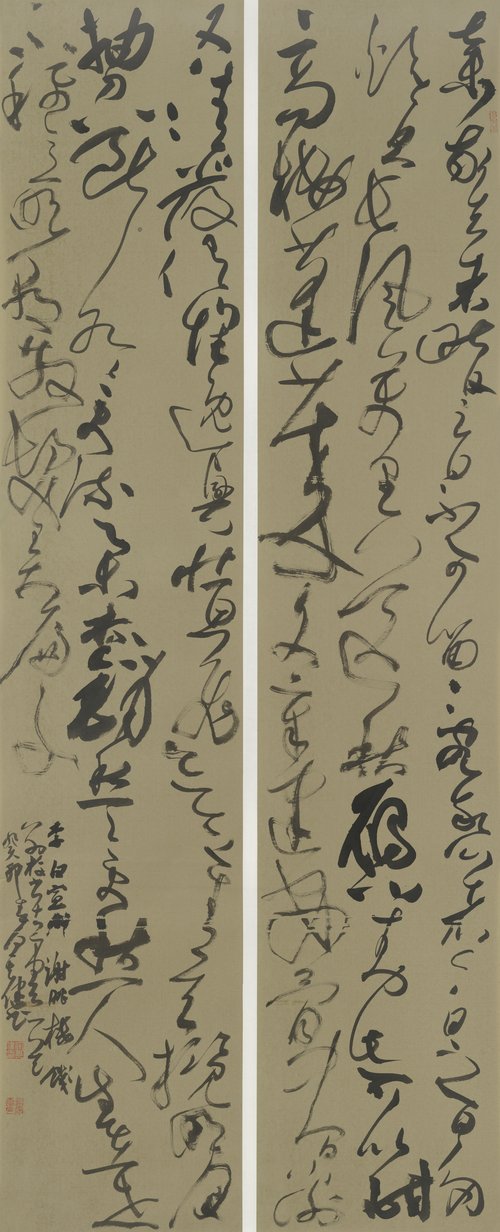 棄我去者昨日之日不可留亂我心者今日之日多
煩憂長風萬里送秋雁對此可以酣
高樓蓬萊文章建安骨中間小謝
又清發俱懷逸興壯思飛欲上青天攬明月
抽刀斷水水更流舉杯銷愁愁更愁人生在世
不稱意明朝散髮弄扁舟
李白宣州謝朓樓餞
別校書叔雲
癸卯